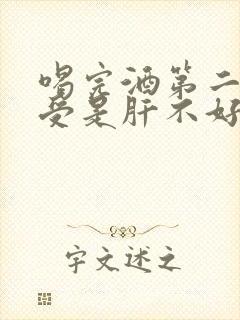 喝完酒第二
受是肝不好
字文述之